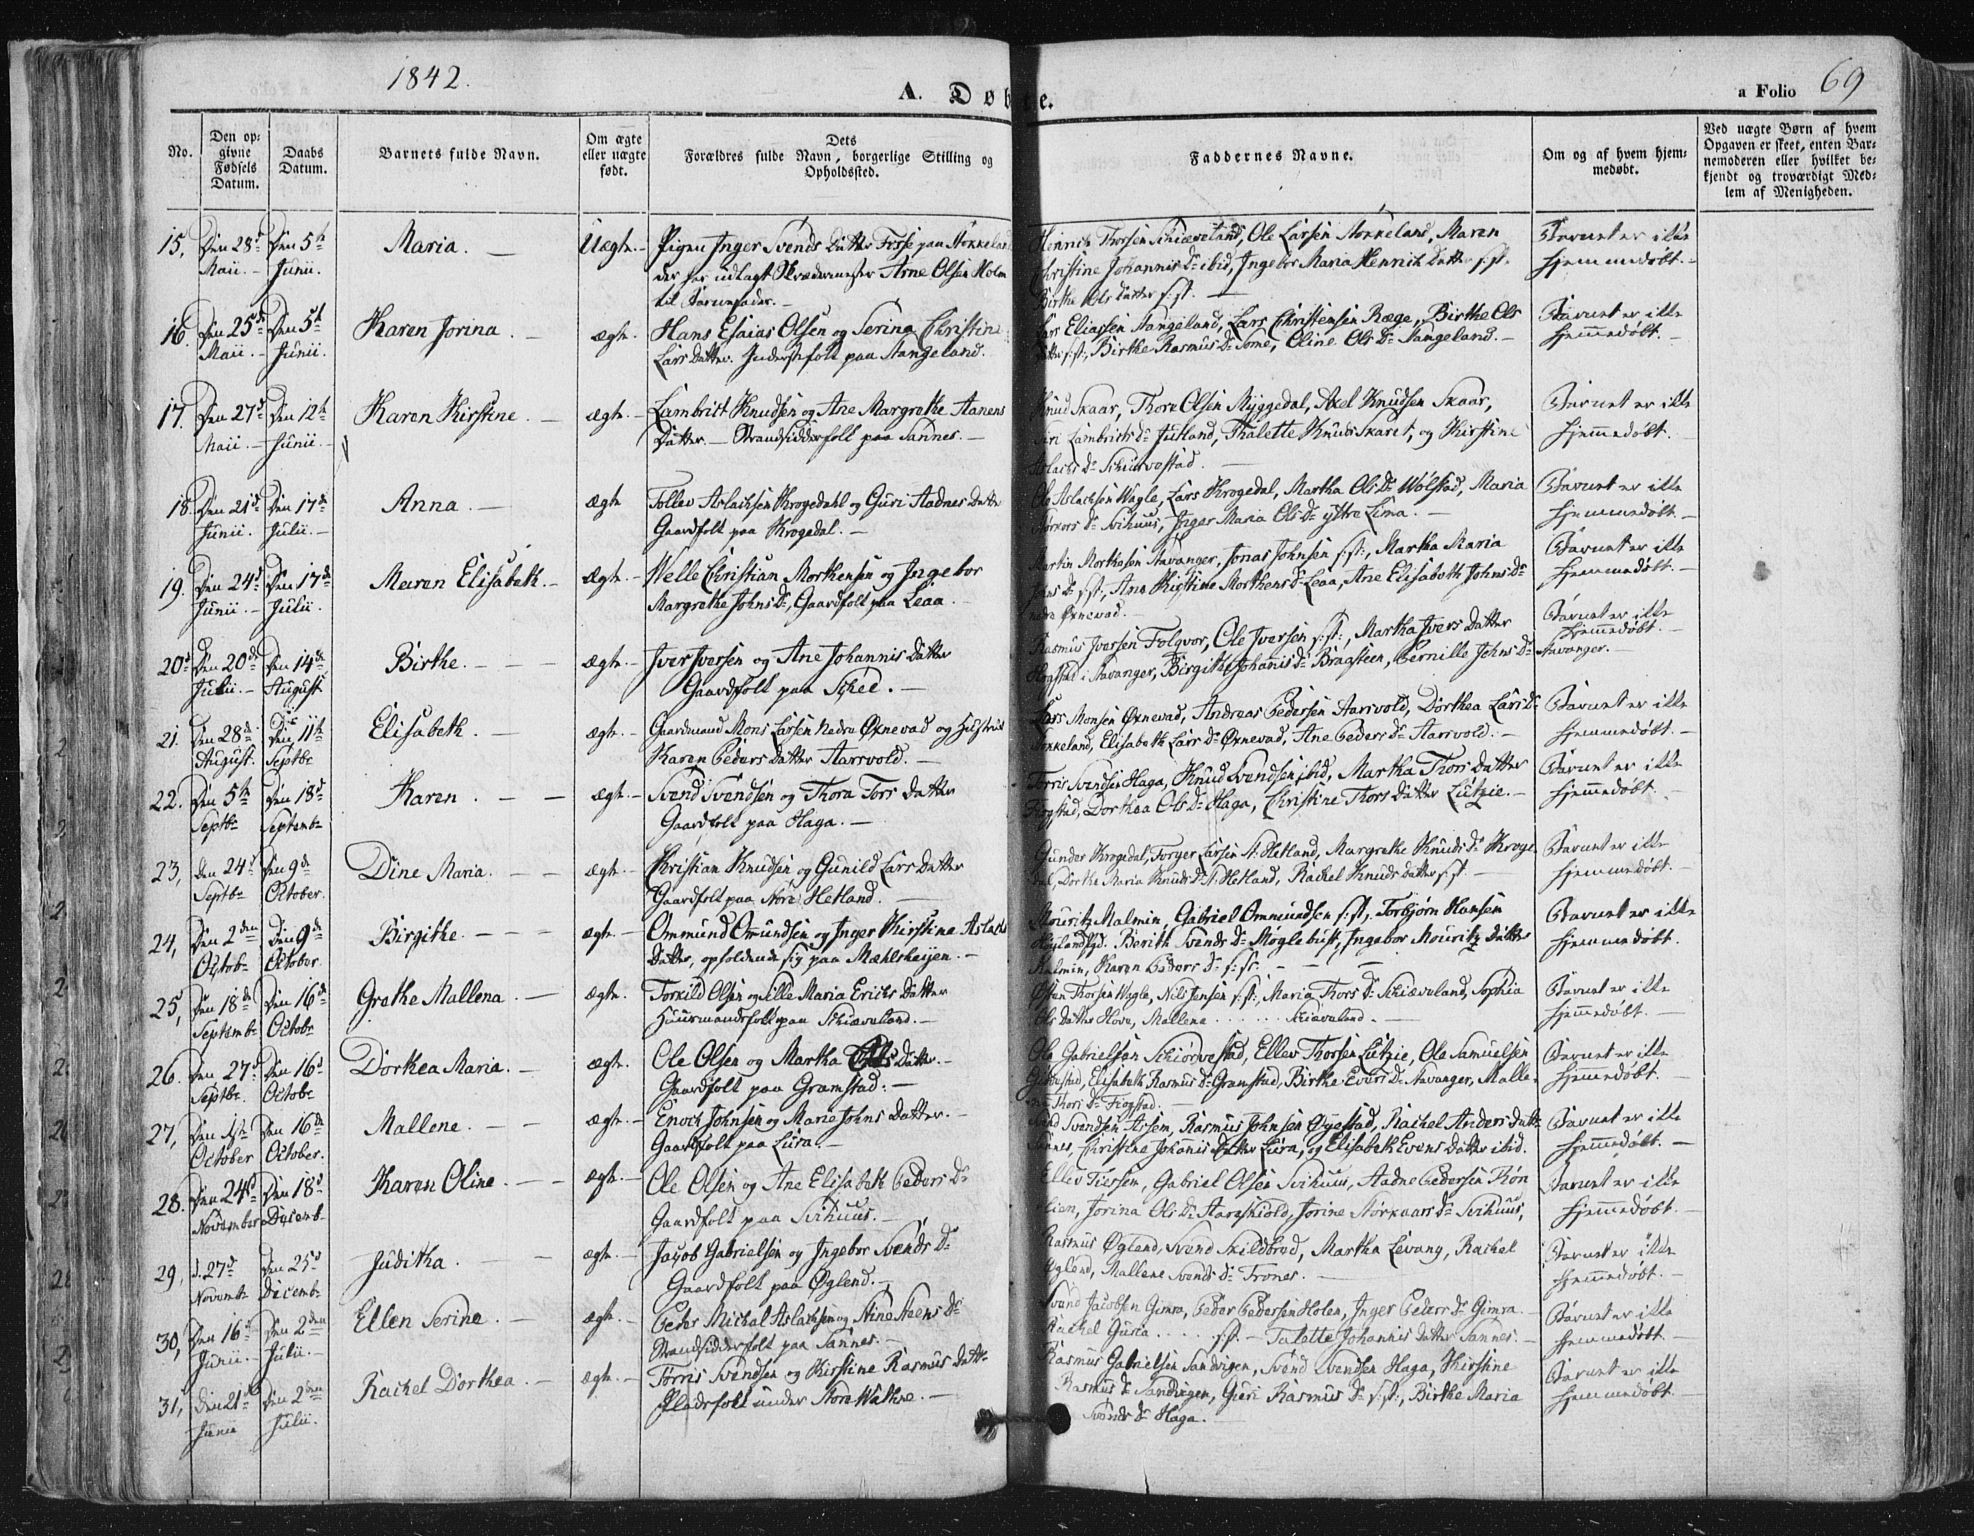 1842.
A. Døbte.
a Folio 69
No.
Den op=
givne
Fødsels
Datum.
Daabs
Datum.
Barnets fulde Navn.
Om ægte
eller uægte
født.
Dets
Forældres fulde Navn, borgerlige Stilling og
Opholdssted.
Faddernes Navne.
Om og af hvem hjem=
medøbt.
Ved uægte Børn af hvem
Opgaven er skeet, enten Bar=
nemoderen eller hvilket be=
kjendt og troværdigt Med=
lem af Menigheden.
15, Den 28d Den 5te Maria. — Uægte. — Pigen Inger Svends Datter paa
Maii. — Junii. der har udlagt Skrædermester Arne Olsen Holm
til Barnefader. —
Henrich Thorsen Schiæveland, Ole Larsen Stokkeland, Maren
Christine Johannis Dr ibid, Ingebor Maria Henrich Datter s. st.
Birthe Ols Datter s. st. —
Barnet er ikke
hjemmedøbt. —
16. Den 25d Den 5te Karen Jorina. — ægte. — Hans Esaias Olsen og Serina Christine
Maii. — Junii. Lars Datter. Inderstfolk paa Stangeland.
Lars Eliassen Stangeland, Lars Christensen Ræge, Birthe Ols
Datter s. st., Birthe Rasmus Dr Some, Oline Ols Dr Stangeland. —
Barnet er ikke
hjemmedøbt. —
17. Den 27d Den 12te Karen Kirstine. — ægte. — Lambrict Knudsen og Ane Margrethe Aanens
Maii. — Junii. — Datter. — Strandsidderfolk paa Sannes. —
Knud Skaar, Thore Olsen Myggedal, Axel Knudsen Skaar,
Siri Lambrichs Dr Jutland, Thalette Knuds Skaret, og Kirstine
Aslachs Dr Schiørvestad. —
Barnet er ikke
hjemmedøbt. —
18. Den 21d Den 17de Anna. — ægte Tollev Aslachsen Krogedahl og Guri Aadnes Datter
Junii. Julii. — Gaardfolk paa Krogedal. —
Ole Aslachsen Vagle, Lars Krogedal, Martha Ols Dr Wølstad, Maria
Størkors Dr Svihuus, Inger Maria Ols Dr ystre Lima. —
Barnet er ikke
hjemmedøbt. —
19. Den 24d Den 17de Maren Elisabeth. — Ægte. — Helle Christian Morthensen og Ingebor
Junii. — Julii. Margrethe Johns Dr, Gaardfolk paa Leaa. —
Martin Morthesen Stavanger, Jonas Johnsen s. st., Martha Maria
Johns Dr s. st., Ane Kistine Morthens Dr Leaa, Ane Elisabeth Johns Dr
nedre Øxnevad. —
Barnet er ikke
hjemmedøbt. —
20d Den 20d Den 14de Birthe. — — ægte. — Iver Iversen og Ane Johannis Datter
Julii. — August. Gaardfolk paa Schee. —
Rasmus Iversen Folgvor, Ole Iversen s. st., Martha Ivers Datter
Hogstad i Stavanger, Birgithe Johanis Dr Bragsteen, Pernille Johns Dr Stavanger. —
Barnet er ikke
hjemmedøbt. —
21. Den 28de Den 11te Elisabeth. — ægte. — Gaardmand Mons Larsen nedre Øxnevad og Hustrue
August. Septbr Karen Peders Datter Aarsvold. —
Lars Monsen Øxnevad, Andreas Pedersen Aarsvold, Dorthea Lars Dr
Stokkeland, Elisabeth Lars Dr Øxnevad, Ane Peders Dr Aarsvold. —
Barnet er ikke
hjemmedøbt. —
22. Den 5te Den 18d Karen. — — ægte. — Svend Svendsen og Thora Tors Datter
Septbr Septembr Gaardfolk paa Haga. —
Torris Svendsen Haga, Knud Svendsen ibid, Martha Thors Datter
Fiogstad, Dorthea Ols Dr Haga, Christine Thors Datter Lutzie. —
Barnet er ikke
hjemmedøbt. —
23, den 24d Den 9de Dine Maria. — — ægte. — Christian Knudsen og Gunild Lars Datter
Septbr October. Gaardfolk paa Nore Hetland. —
Gunder Krogedal, Torger Larsen N. Hetland, Margrethe Knuds Dr Kroge=
dal, Dorthe Maria Knuds Dr N. Hetland, Rachel Knuds Datter s. st. —
Barnet er ikke
hjemmedøbt. —
24, Den 2den Den 9de Birgithe. — — — ægte. — Ommund Omundsen og Inger Kirstine Aslachs
Octob. October. Datter, opholdende sig paa Mæhlsheijen. —
Mouritz Malmin, Gabriel Ommundsen s. st., Torbjørn Hansen
Høylandsbd. Berith Svends Dr Møglebust, Ingebor Mouritz Datter
Malmin, Karen Peders Dr s. st. — — —
Barnet er ikke
hjemmedøbt.
25, Den 18de Den 16de Grethe Mallena. — ægte. Torkild Olsen og Elle Maria Erichs Datter
Septembr Octobr Huusmandsfolk paa Schiæveland. —
Østen Thorsen Wagle, Nils Jensen s. st., Maria Thors Dr Schiæveland, Sophia
Ols Datter Hove, Mallena . . . . . . Schiæveland. —
Barnet er ikke
hjemmedøbt. —
26. Den 27d Den 16d Dorthea Maria. — ægte. Ole Olsen og Martha Datter. —
Septbr Octobr Gaardfolk paa Gramstad. —
Ole Gabrielsen Schiørvestad, Ellev Thorsen Lutzie, Ole Samuelsen
Elisabeth Rasmus Dr Gramstad, Birthe Evers Dr Stavanger, Malle=
ne Thors Dr Fiogstad. —
Barnet er ikke
hjemmedøbt. —
27, Den 1ste Den 16de Mallene. — — ægte. — Enoch Johnsen og Marie Johns Datter. —
October October. Gaardfolk paa Lura. —
Svend Svendsen Assem, Rasmus Johnsen Øyestad, Rachel Anders Datt.
Sannes, Christine Johanis Datter Lura, og Elisabeth Evens Datter ibid.
Barnet er ikke
hjemmedøbt. —
28. Den 24d Den 18d Karen Oline. — — ægte. — Ole Olsen og Ane Elisabeth Peders Dr
November Decemb. Gaardfolk paa Svihuus. —
Ellev Tiersen, Gabriel Olsen Svihuus, Aadne Pedersen Røn
Jorina Ols Dr Jorine Størkaars Dr Svihuus,
Barnet er ikke
hjemmedøbt. —
29, d. 27d Den 25d Juditha. — ægte. — Jacob Gabrielsen og Ingebor Svends Dr
Novembr Decembr Gaardfolk paa Øglend. —
Rasmus Øgland, Svend Skildbred, Martha Levang, Rachel
Øglend, Mallene Svends Dr Trones. —
Barnet er ikke
hjemmedøbt. —
30, Den 16d Den 2den Ellen Serine. — ægte. — Peder Michal Aslachsen og Stine Steens Dr
Junii. — Julii. — Strandsidderfolk paa Sannes. —
Svend Jacobsen Gimra, Peder Pedersen Holen, Inger Peders Dr Gimra. —
Rachel Guria . . . . . s. st. — Talette Johannis Datter Sannes. —
Barnet er ikke
hjemmedøbt. —
31, Den 21d Den 2den Rachel Dorthea. — ægte. — Torris Svendsen og Kirstine Rasmus Datt=
Junii Julii. Pladsfolk under Store Wathne. —
Rasmus Gabrielsen Sandvigen, Svend Svendsen Haga, Kirstine
Rasmus Dr Sandvigen, Guri Rasmus Dr s. st., Birthe Maria
Svends Dr Haga. —
Barnet er ikke
hjemmedøbt. —